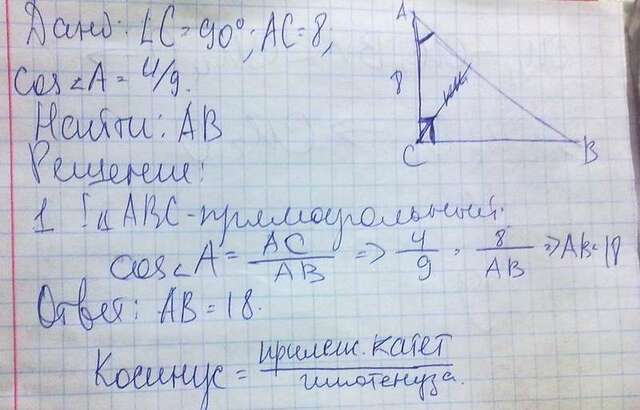 Дано: ∠C=90°; AC=8;
cos∠A=4/9.
Найти: AB
Решение:
1 △ABC-прямоугольный:
cos∠A = AC/AB => 4/9 = 8/AB => AB=18
Ответ: AB=18.
Косинус = прилеж. катет/гипотенуза.
A
8
C
B